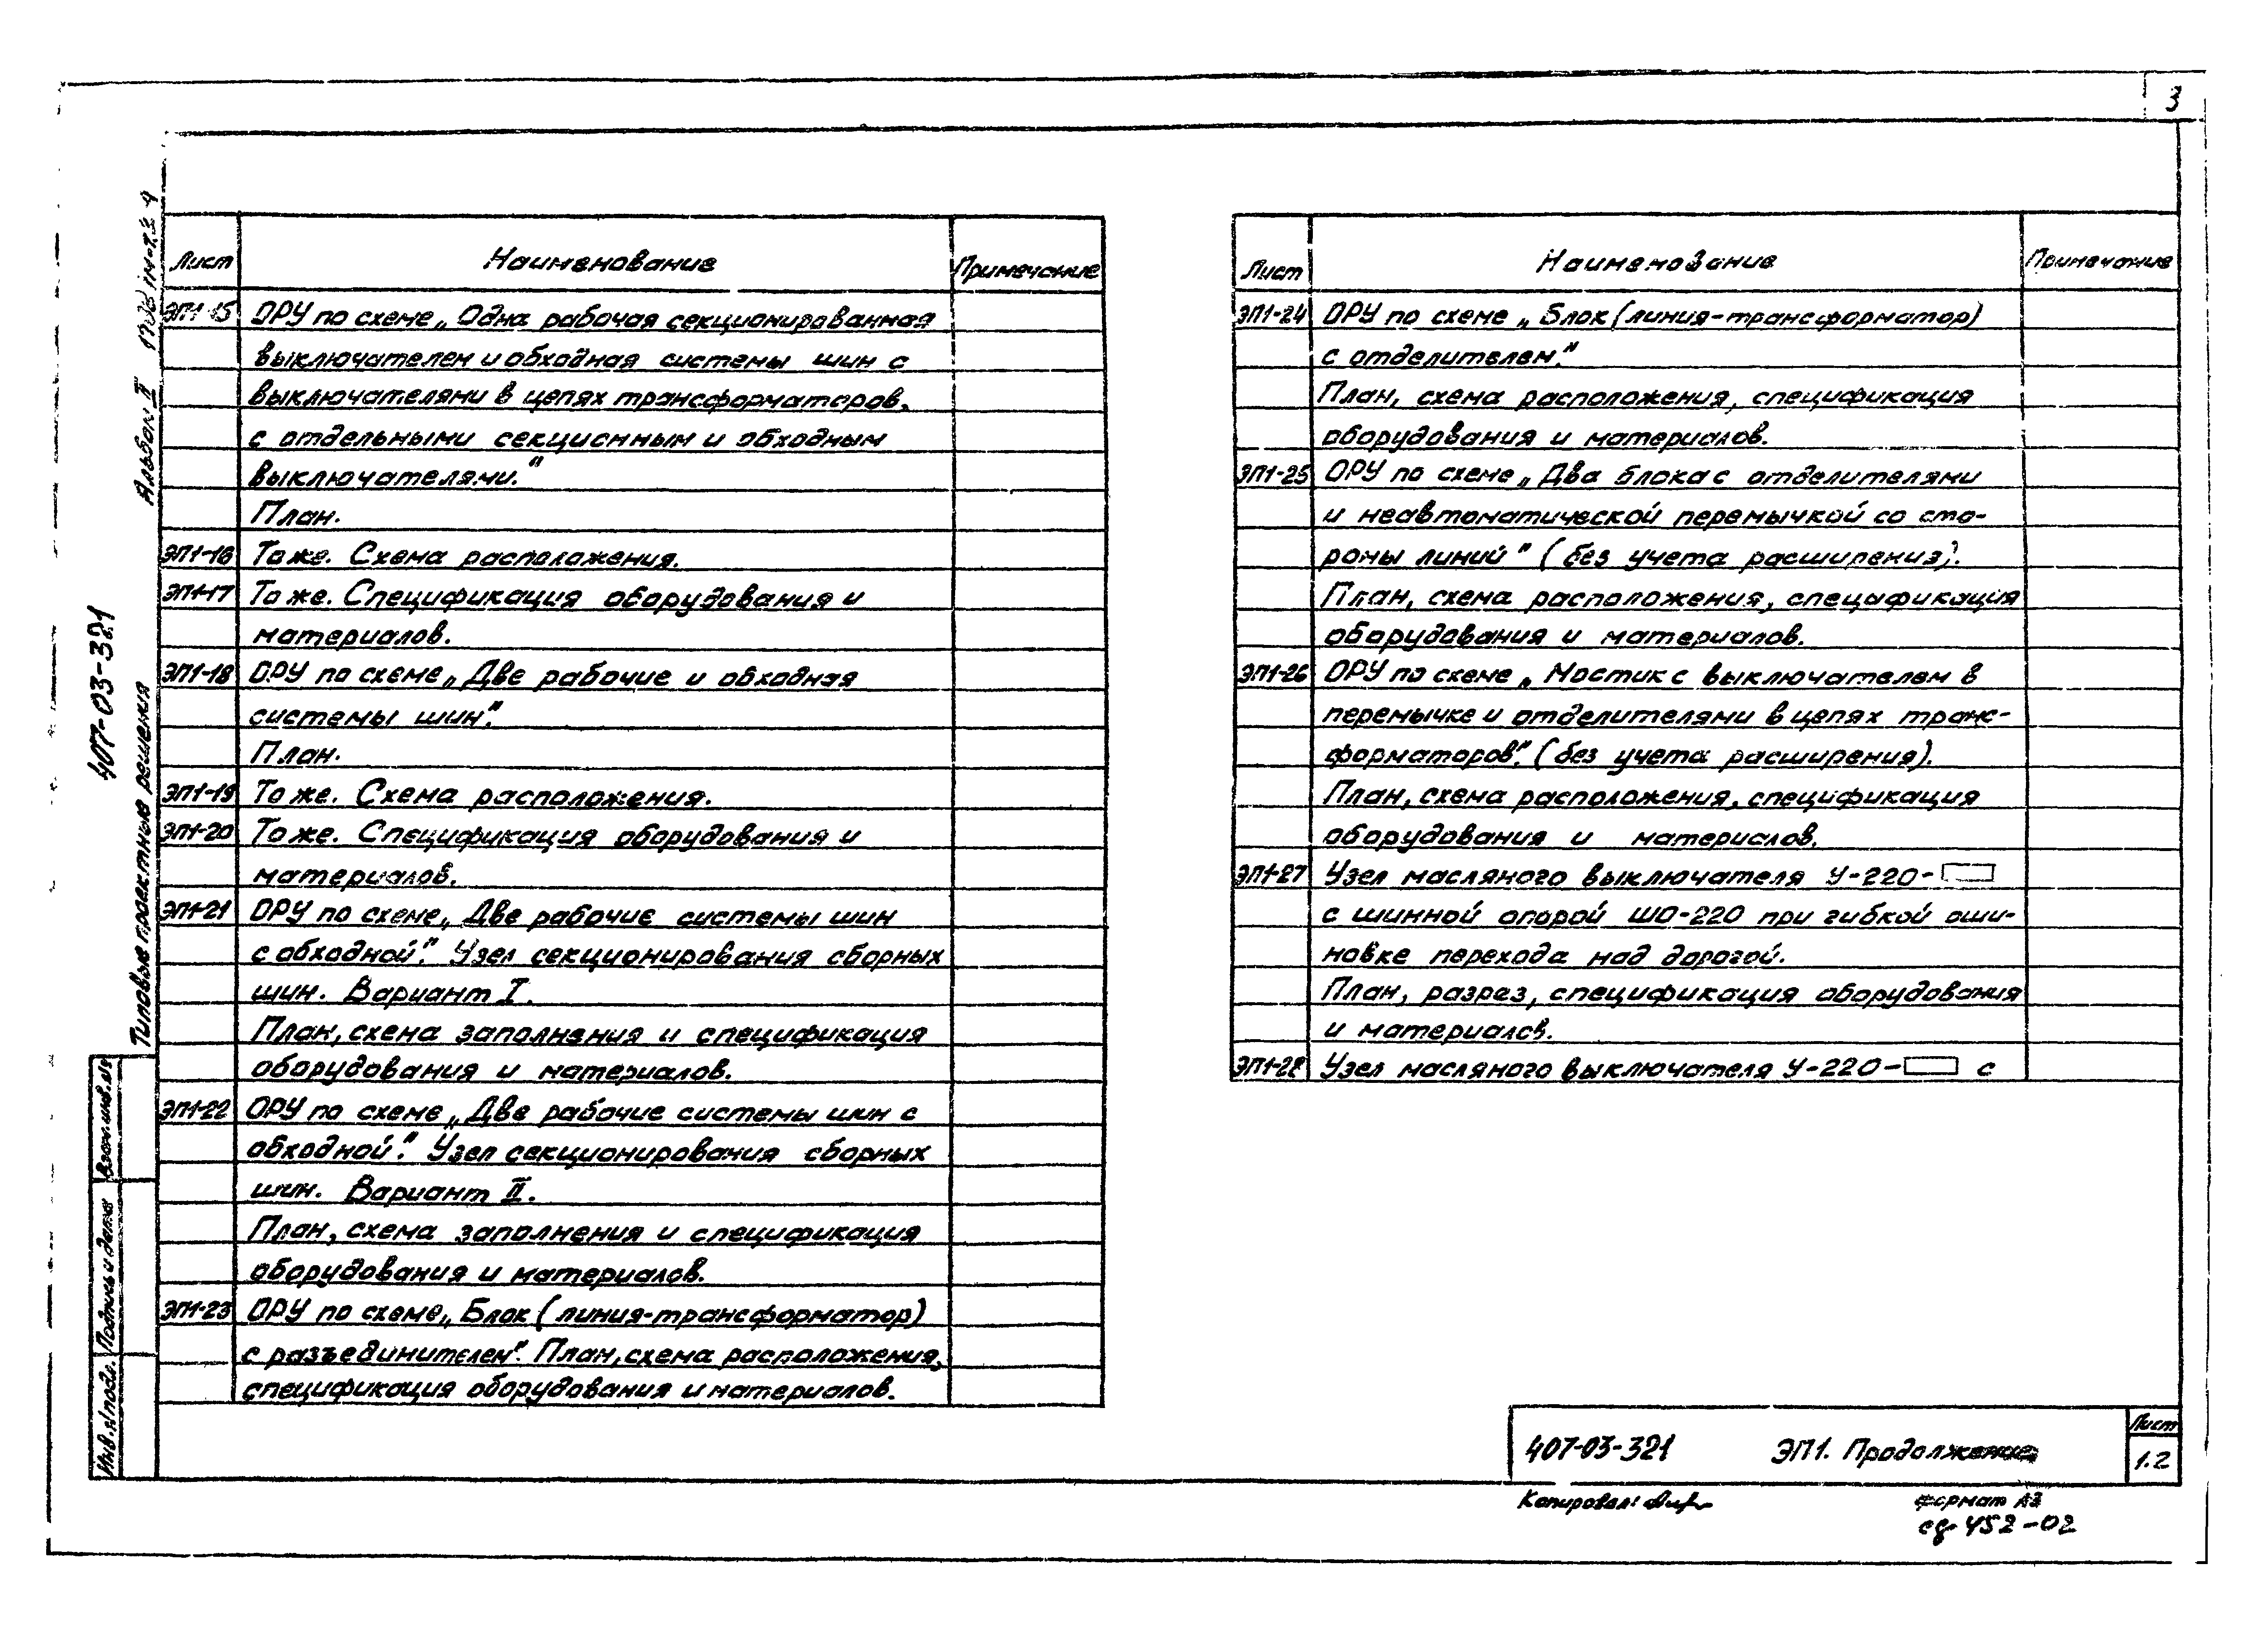 3
Лист Наименование Примечание
ЭП1-15 ОРУ по схеме „Одна рабочая секционированная
выключателем и обходная системы шин с
выключателями в цепях трансформаторов,
с отдельными секционным и обходным
выключателями."
План.
ЭП1-16 То же. Схема расположения.
ЭП1-17 То же. Спецификация оборудования и
материалов.
ЭП1-18 ОРУ по схеме „Две рабочие и обходная
системы шин".
План.
ЭП1-19 То же. Схема расположения.
ЭП1-20 То же. Спецификация оборудования и
материалов.
ЭП1-21 ОРУ по схеме „Две рабочие системы шин
с обходной". Узел секционирования сборных
шин. Вариант I.
План, схема заполнения и спецификация
оборудования и материалов.
ЭП1-22 ОРУ по схеме „Две рабочие системы шин с
обходной". Узел секционирования сборных
шин. Вариант II.
План, схема заполнения и спецификация
оборудования и материалов.
ЭП1-23 ОРУ по схеме „Блок (линия-трансформатор)
с разъединителем". План, схема расположения,
спецификация оборудования и материалов.
Лист Наименование Примечание
ЭП1-24 ОРУ по схеме „Блок (линия-трансформатор)
с отделителем."
План, схема расположения, спецификация
оборудования и материалов.
ЭП1-25 ОРУ по схеме „Два блока с отделителями
и неавтоматической перемычкой со сто-
роны линий" (без учета расширения).
План, схема расположения, спецификация
оборудования и материалов.
ЭП1-26 ОРУ по схеме „Мостик с выключателем в
перемычке и отделителями в цепях транс-
форматоров". (без учета расширения).
План, схема расположения, спецификация
оборудования и материалов.
ЭП1-27 Узел масляного выключателя У-220-
с шинной опорой ШО-220 при гибкой оши-
новке перехода над дорогой.
План, разрез, спецификация оборудования
и материалов.
ЭП1-28 Узел масляного выключателя У-220- с
407-03-321
Типовые проектные решения Альбом II
Взам.инв.№
Подпись и дата
Инв.№подл.
407-03-321 ЭП1. Продолжение
Лист
1.2
Копировал:
формат А3
452-02